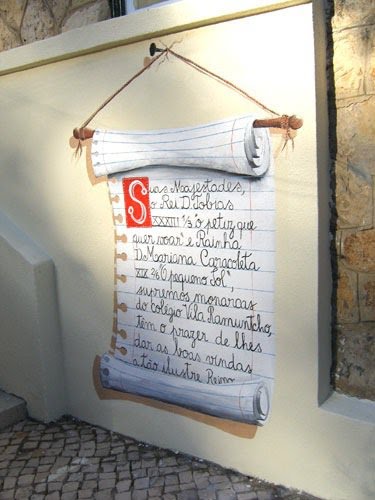 Suas Majestades,
o Rei D. Tobias
XXXIII ⅓ "o petiz que
quer voar" e Rainha
D. Mariana Caracoleta
XIX "O pequeno Sol",
supremos monarcas
do Colégio Vila Ramuntcho,
têm o prazer de lhes
dar as boas vindas
a tão ilustre Reino.